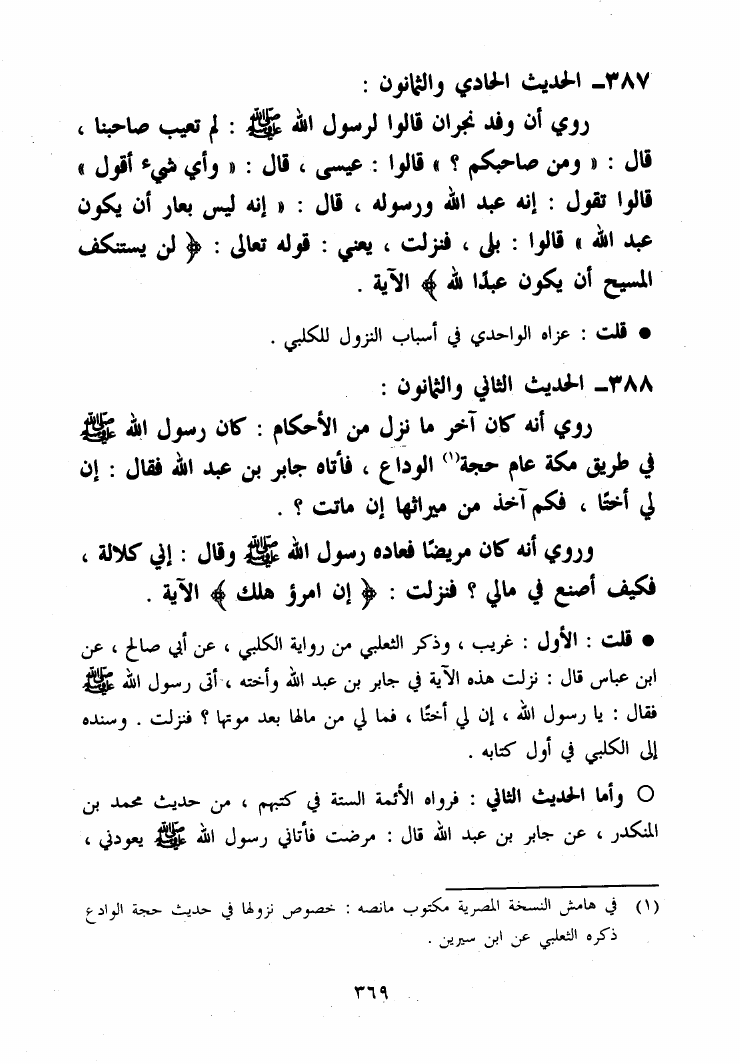 ٣٨٧ـ الحديث الحادي والثمانون :
روي أن وفد نجران قالوا لرسول الله ﷺ : لم تعيب صاحبنا ،
قال : « ومن صاحبكم ؟ » قالوا : عيسى ، قال : « وأي شيء أقول »
قالوا تقول : إنه عبد الله ورسوله ، قال : « إنه ليس بعار أن يكون
عبد الله » قالوا : بلى ، فنزلت ، يعني : قوله تعالى : ﴿ لن يستنكف
المسيح أن يكون عبدًا لله ﴾ الآية .
● قلت : عزاه الواحدي في أسباب النزول للكلبي .
٣٨٨ـ الحديث الثاني والثمانون :
روي أنه كان آخر ما نزل من الأحكام : كان رسول الله ﷺ
في طريق مكة عام حجة(١) الوداع ، فأتاه جابر بن عبد الله فقال : إن
لي أختًا ، فكم آخذ من ميراثها إن ماتت ؟ .
وروي أنه كان مريضًا فعاده رسول الله ﷺ وقال : إني كلالة ،
فكيف أصنع في مالي ؟ فنزلت : ﴿ إن امرؤ هلك ﴾ الآية .
● قلت : الأول : غريب ، وذكر الثعلبي من رواية الكلبي ، عن أبي صالح ، عن
ابن عباس قال : نزلت هذه الآية في جابر بن عبد الله وأخته ، أتى رسول الله ﷺ
فقال : يا رسول الله ، إن لي أختًا ، فما لي من مالها بعد موتها ؟ فنزلت . وسنده
إلى الكلبي في أول كتابه .
○ وأما الحديث الثاني : فرواه الأئمة الستة في كتبهم ، من حديث محمد بن
المنكدر ، عن جابر بن عبد الله قال : مرضت فأتاني رسول الله ﷺ يعودني ،
(١) في هامش النسخة المصرية مكتوب مانصه : خصوص نزولها في حديث حجة الوادع
ذكره الثعلبي عن ابن سيرين .
٣٦٩